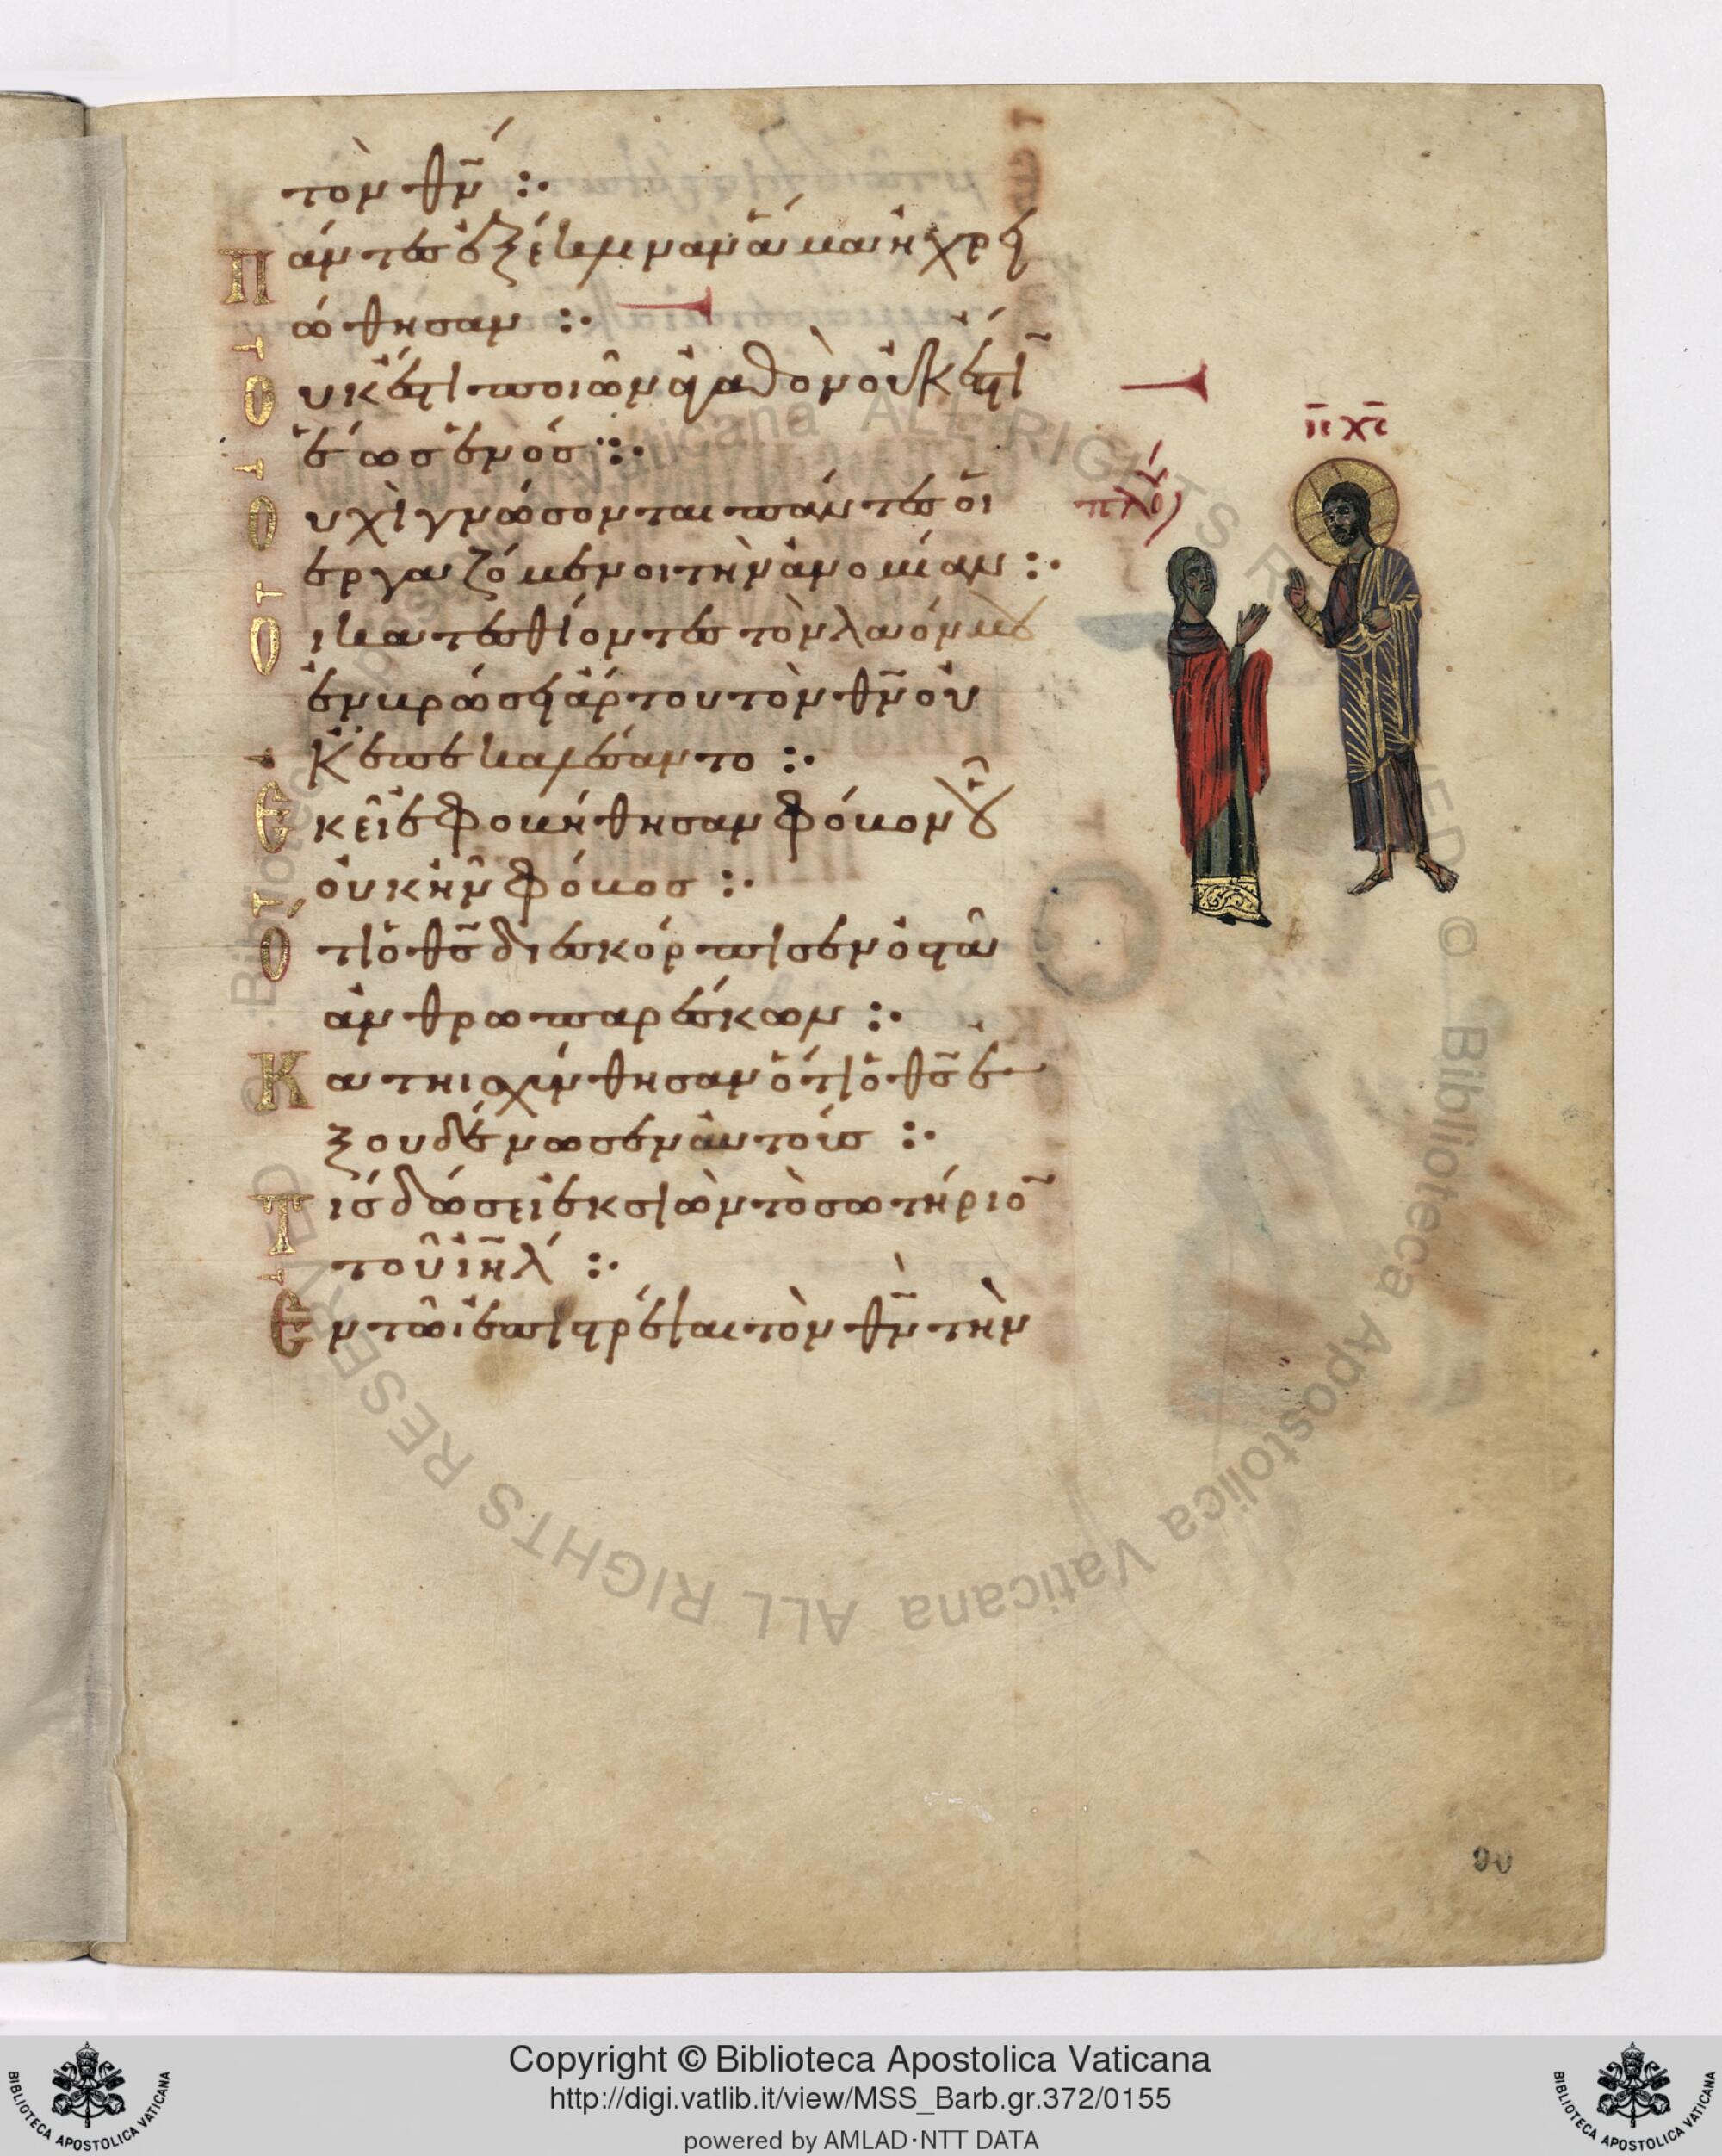 τὸν θν̄ :·
Πάντες ἐξέκλιναν ἅμα ἠχρει
ώθησαν :·
Οὐκ ἔστι ποιῶν ἀγαθὸν οὐκ ἔστῑ
ἕως ἑνός :·
Οὐχὶ γνώσονται πάντες οἱ
ἐργαζόμενοι τὴν ἀνομίαν :·
Οἱ κατεσθίοντες τὸν λαόν μου
ἐν βρώσει ἄρτου τὸν θν̄ οὐ
κ ἐπεκαλέσαντο :·
Ἐκεῖ ἐφοβήθησαν φόβον οὗ
οὐκ ἦν φόβος :·
Ὅτι ὁ θς̄ διεσκόρπισεν ὀστᾶ
ἀνθρωπαρέσκων :·
Κατηισχύνθησαν ὅτι ὁ θς̄ ἐ
ξουδένωσεν αὐτούς :·
Τίς δώσει ἐκ σιὼν τὸ σωτήριο̄
τοῦ ιη̄λ :·
Ἐν τῶι ἐπιστρέψαι τὸν θν̄ τὴν
ῑς χ̄ς
90
Copyright © Biblioteca Apostolica Vaticana
http://digi.vatlib.it/view/MSS_Barb.gr.372/0155
powered by AMLAD·NTT DATA
BIBLIOTECA APOSTOLICA VATICANA
BIBLIOTECA APOSTOLICA VATICANA